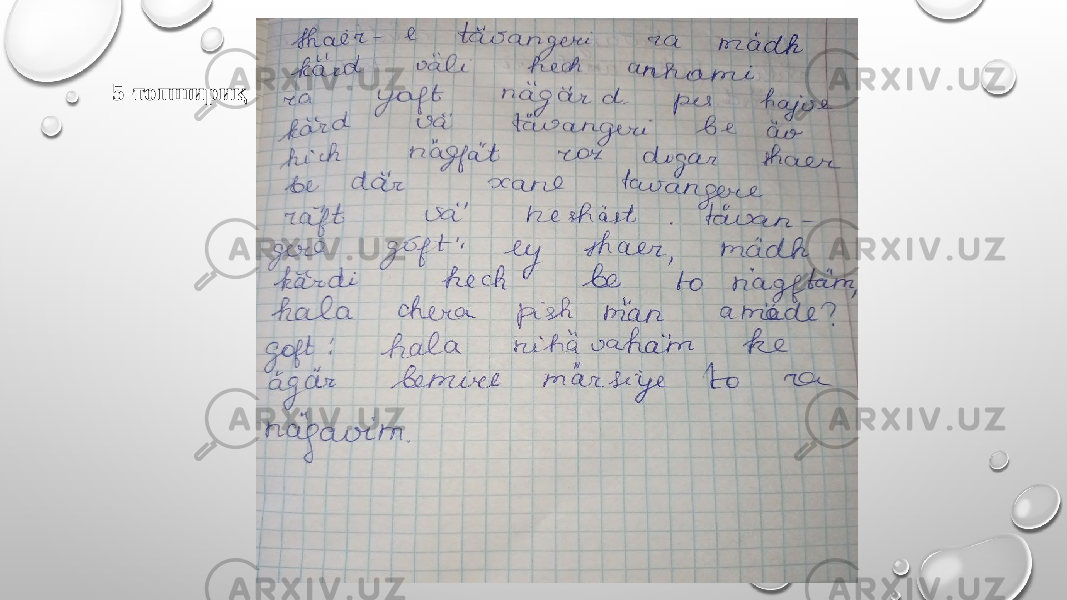 5 топшириқ
shaer- e tävangeri ra mädh
kärd väli hech anhami
ra yaft nägärd. pes hajve
kärd vä tävangeri be äv
hich nägfät roz digar shaer
be där xane tavangere
räft vä neshäst. tävan-
gera goft: ey shaer, mädh
kärdi hech be to nägftäm,
hala chera pish män amäde?
goft: hala nihävahäm ke
ägär bemire märsiye to ra
nägavim.
ARXIV.UZ